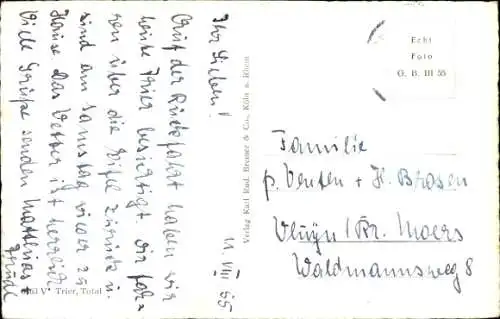 Ihr Lieben!
Auf der Rückfahrt haben wir
heute Trier besichtigt. Wir fahren
über die Eifel zurück u.
sind am Samstag wieder zu
Hause. Das Wetter ist herrlich
Viele Grüße senden Matthias +
Trudi
11. VIII 55
363 V Trier, Total
Verlag Karl Rud. Bremer & Co., Köln a. Rhein
Echt
Foto
G. B. III 55
Familie
p. Venten + H. Brosen
Vluyn / Kr. Moers
Waldmannsweg 8